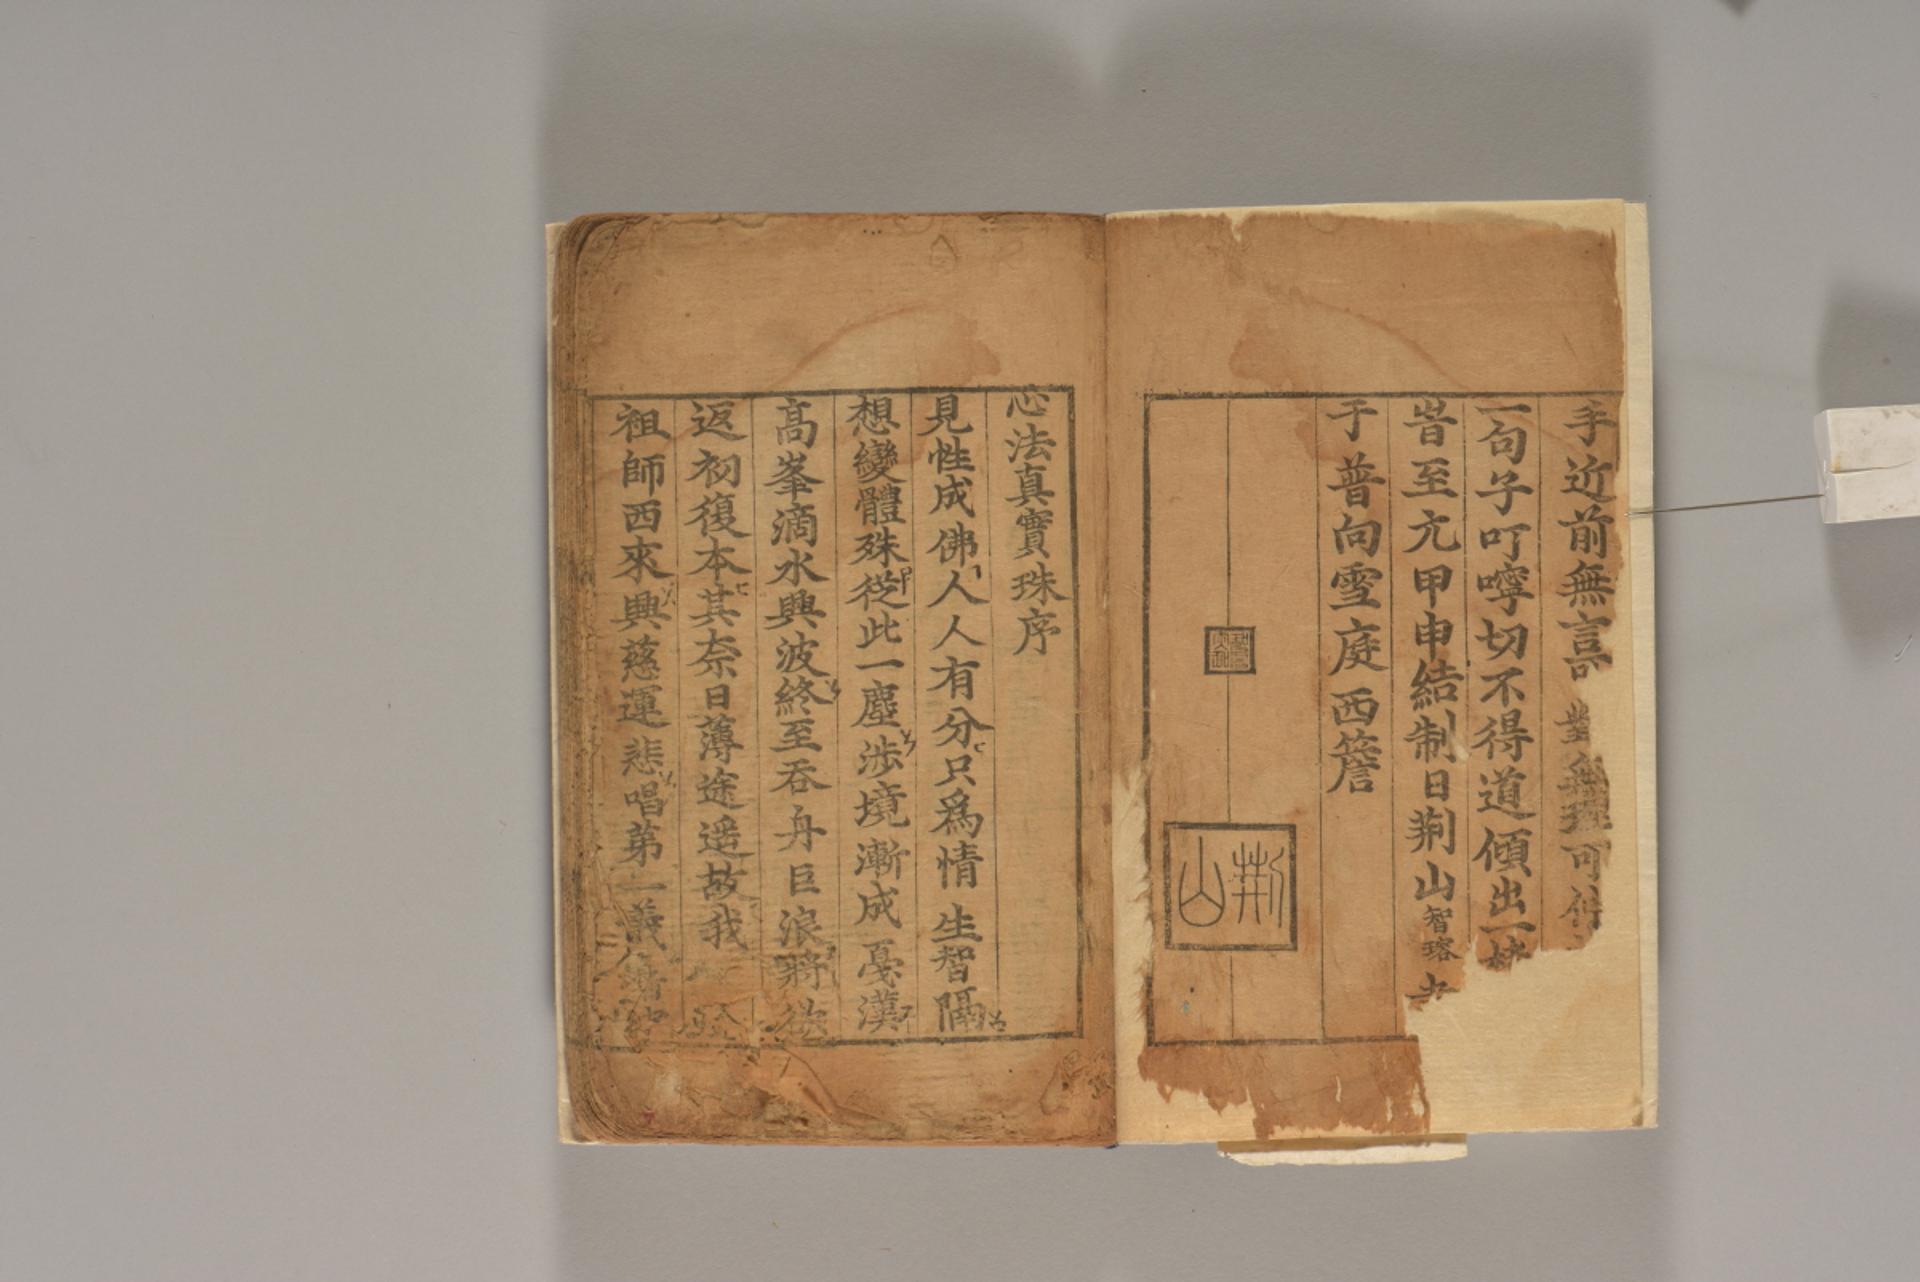 手近前無言可對無理可伸
一句子叮嚀切不得道傾出一
旹至亢甲申結制日荊山智瑢
于普向雪庭西簷
荊山
心法真實珠序
見性成佛人人有分只爲情生智隔
想變體殊從此一塵涉境漸成戞漢
高峯滴水興波終至吞舟巨浪將欲
返初復本其奈日薄途遥故我
祖師西來興慈運悲唱第一義